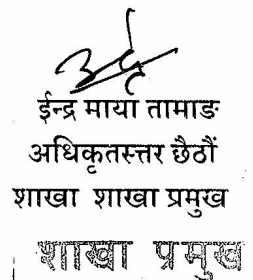 ईन्द्र माया तामाङ
अधिकृतस्तर छैठौं
शाखा शाखा प्रमुख
शाखा प्रमुख